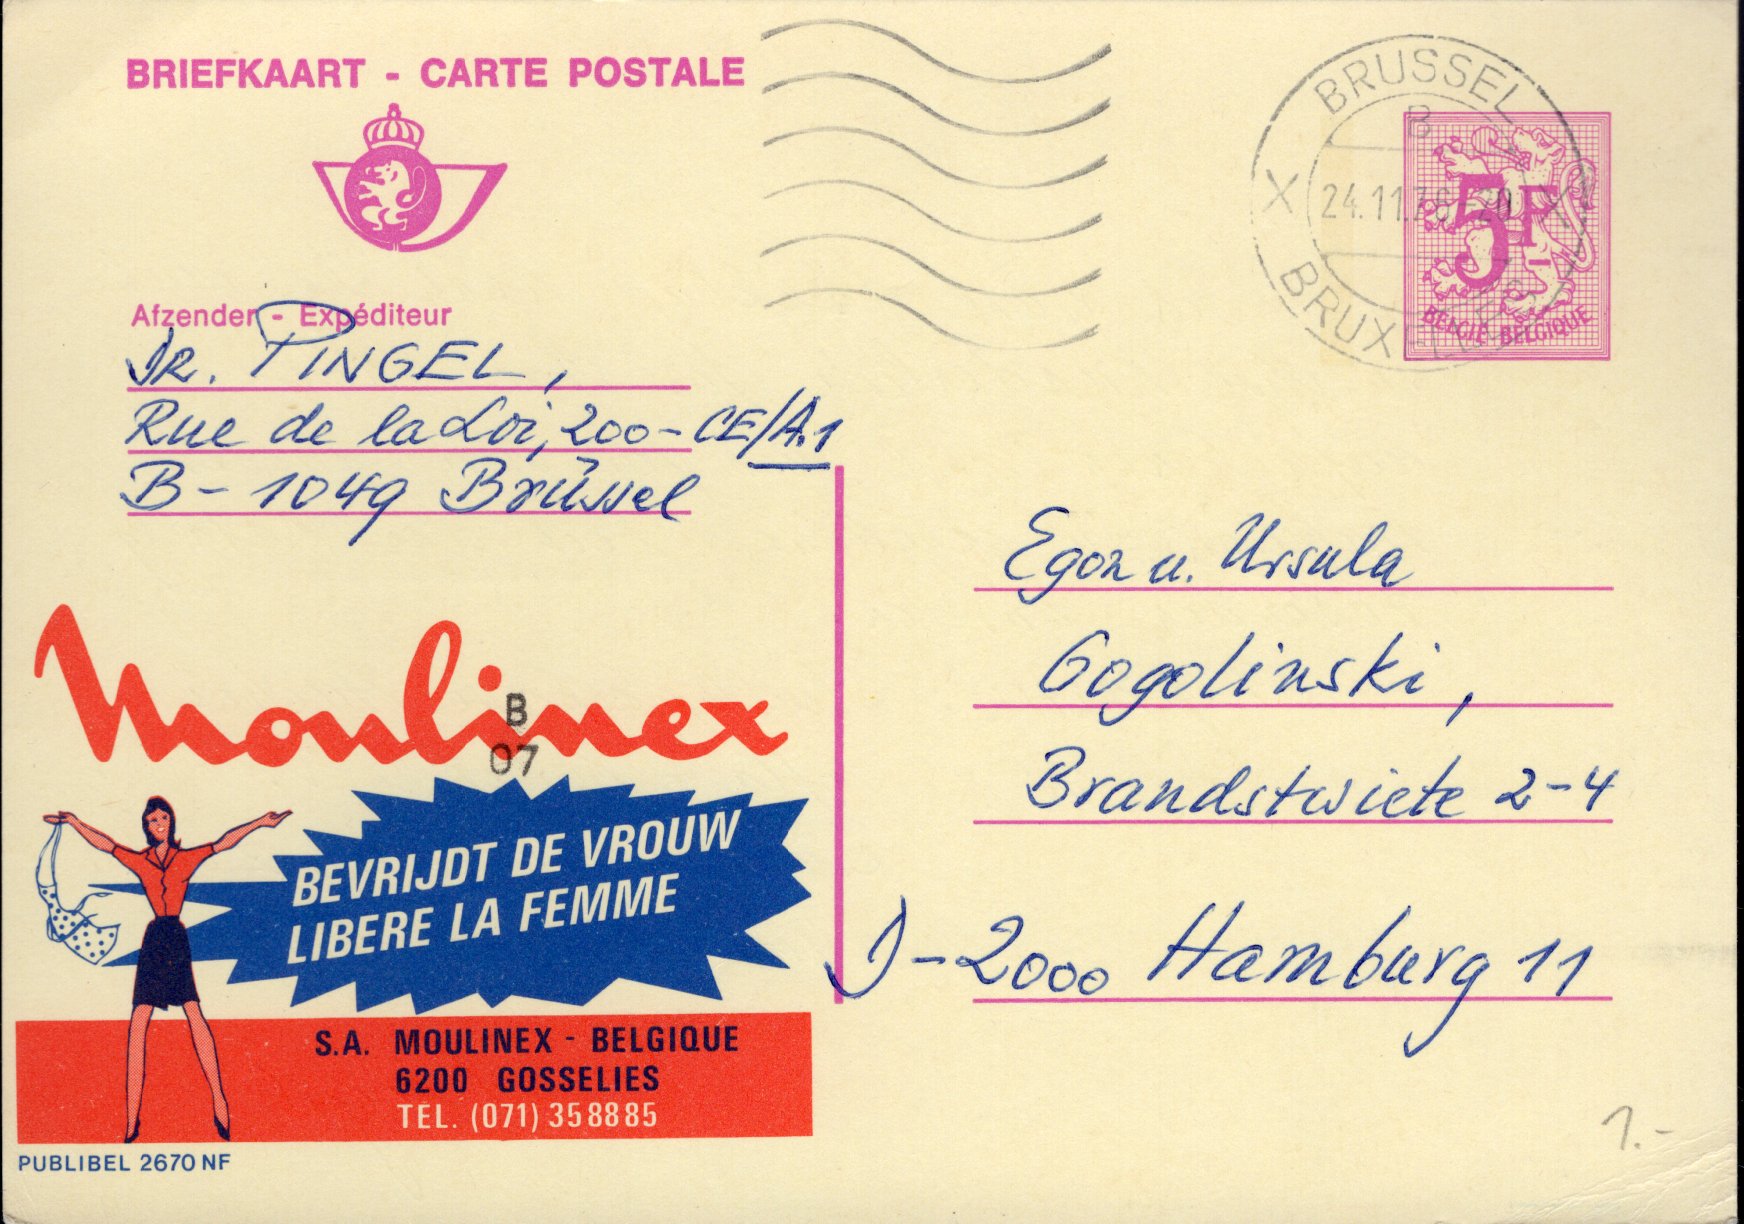 BRIEFKAART - CARTE POSTALE
BRUSSEL
B
24.11.76 -20
BRUXELLES
5F
BELGIË-BELGIQUE
Afzender - Expéditeur
Dr. PINGEL,
Rue de la Loi, 200-CE/A.1
B-1049 Brüssel
Egon u. Ursula
Gogolinski,
Brandstwiete 2-4
D-2000 Hamburg 11
Moulinex
B
07
BEVRIJDT DE VROUW
LIBERE LA FEMME
S.A. MOULINEX - BELGIQUE
6200 GOSSELIES
TEL. (071) 358885
PUBLIBEL 2670 NF
1.-